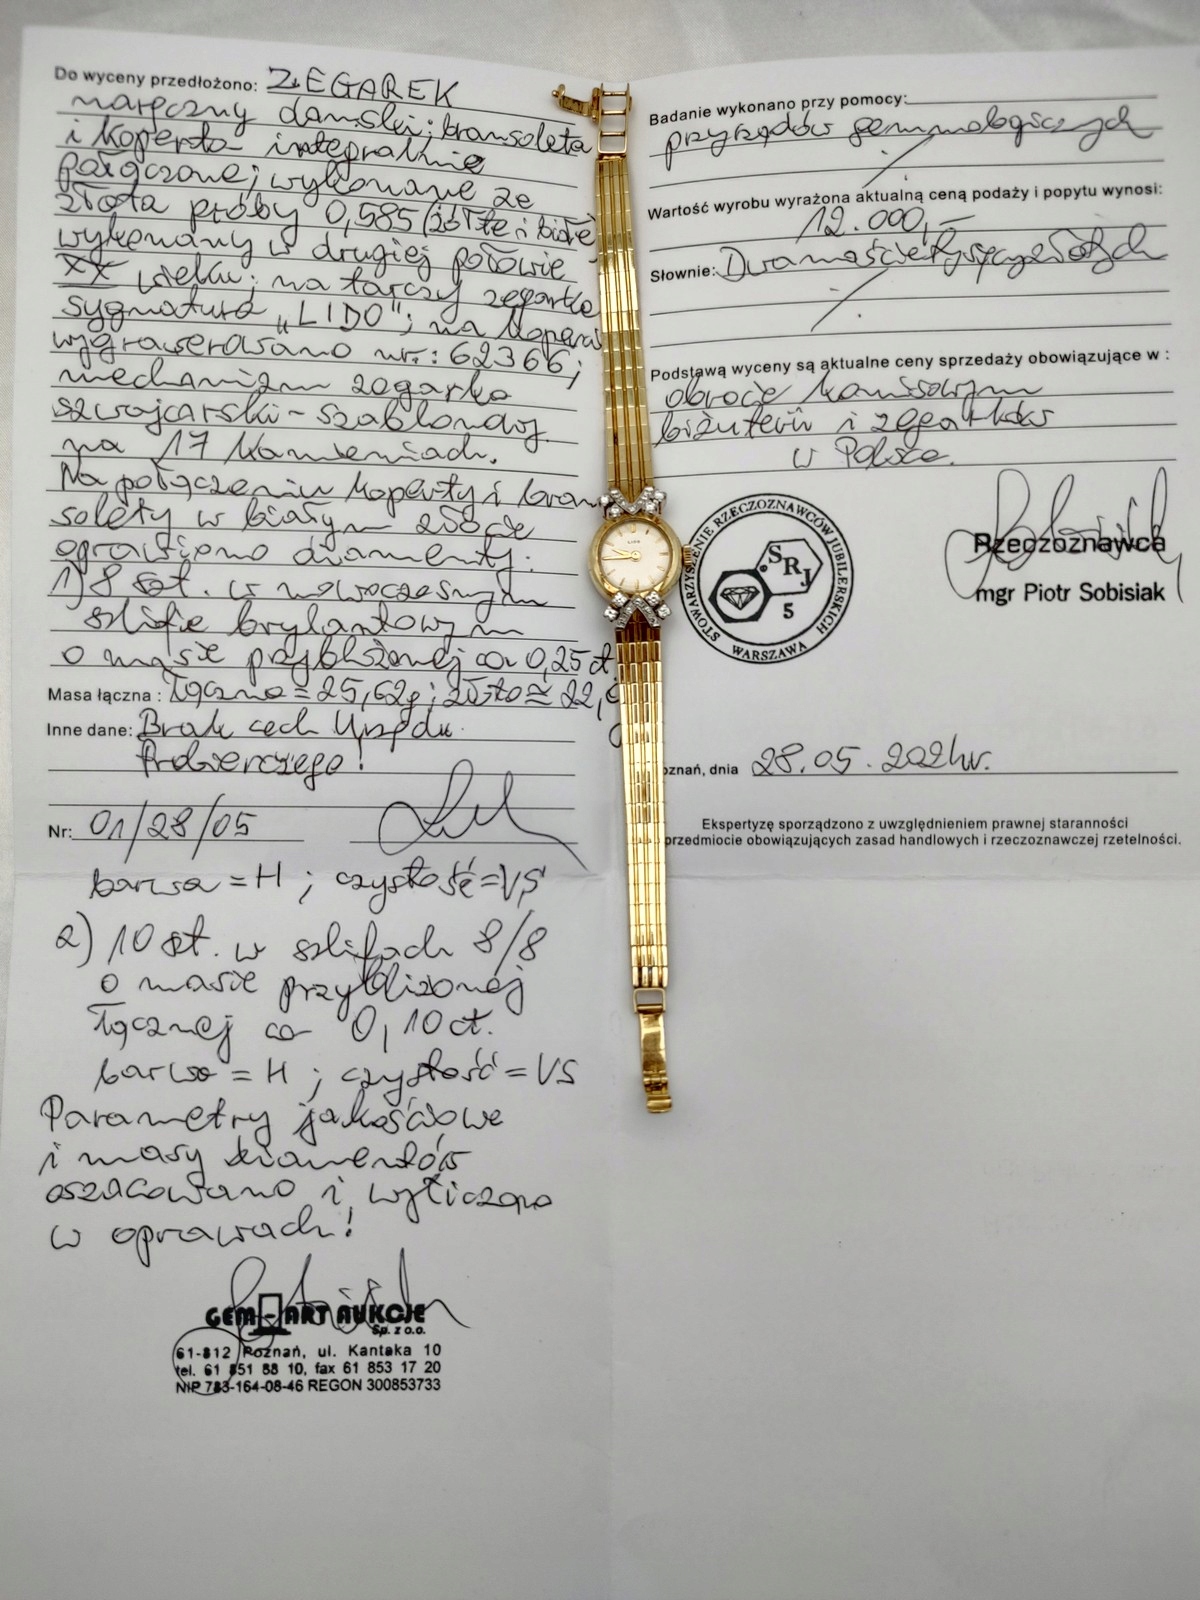 Do wyceny przedłożono: ZEGAREK
naręczny damski; bransoleta
i koperta integralnie
połączone; wykonane ze
złota próby 0,585 (żółte i białe)
wykonany w drugiej połowie
XX wieku; na tarczy zegarka
sygnatura „LIDO"; na koperc
wygrawerowano nr.: 62366;
mechanizm zegarka
szwajcarski - szablonowy
na 17 kamieniach.
Na połączeniu koperty i bran
solety w białym złocie
oprawiono diamenty:
1) 8 szt. w nowoczesnym
szlifie brylantowym
o masie przybliżonej ca 0,25 ct
Masa łączna: Łączna = 25,62g; złoto ≅ 22,
Inne dane: Brak cech Urzędu
Probierczego!
Nr: 01/28/05
barwa = H ; czystość = VS
2) 10 szt. w szlifach 8/8
o masie przybliżonej
łącznej ca 0,10 ct.
barwa = H ; czystość = VS
Parametry jakościowe
i masy diamentów
oszacowano i wyliczono
w oprawach!
GEM-ART AUKCJE
Sp. z o.o.
61-812 Poznań, ul. Kantaka 10
tel. 61 851 88 10, fax 61 853 17 20
NIP 783-164-08-46 REGON 300853733
Badanie wykonano przy pomocy:
przyrządów gemmologicznych
Wartość wyrobu wyrażona aktualną ceną podaży i popytu wynosi:
12.000,-
Słownie: Dwanaście tysięcy złotych
Podstawą wyceny są aktualne ceny sprzedaży obowiązujące w :
obrocie komisowym
biżuterii i zegarków
w Polsce.
STOWARZYSZENIE RZECZOZNAWCÓW JUBILERSKICH
WARSZAWA
SRJ
5
Rzeczoznawca
mgr Piotr Sobisiak
LIDO
oznań, dnia 28.05.2021r.
Ekspertyzę sporządzono z uwzględnieniem prawnej staranności
przedmiocie obowiązujących zasad handlowych i rzeczoznawczej rzetelności.